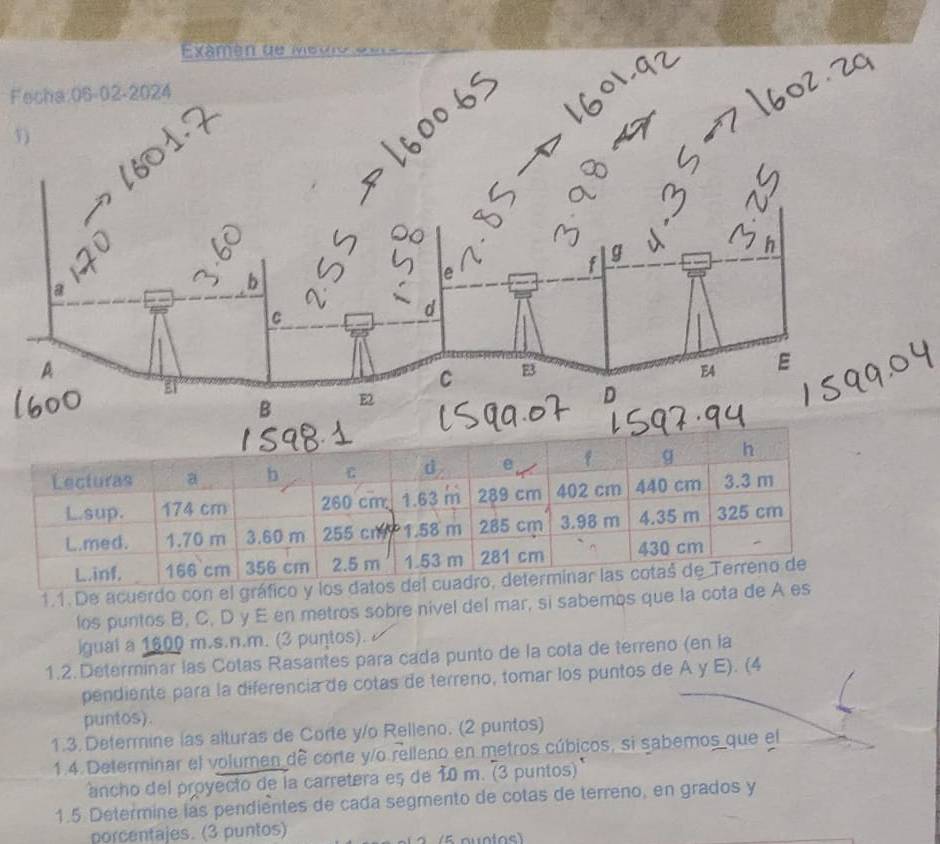 Examen de Medio
Fecha:06-02-2024
1)
170 → 1601.7
3.60
2.55 → 160065
1.58
2.85 → 1601.92
3.98
4.35 → 1602.29
3.25
a b c d e f g h
A E1 B E2 C E3 D E4 E
1600 1598.1 1599.07 1597.94 1599.04
Lecturas a b c d e f g h
L.sup. 174 cm 260 cm 1.63 m 289 cm 402 cm 440 cm 3.3 m
L.med. 1.70 m 3.60 m 255 cm 1.58 m 285 cm 3.98 m 4.35 m 325 cm
L.inf. 166 cm 356 cm 2.5 m 1.53 m 281 cm 430 cm -
1.1. De acuerdo con el gráfico y los datos del cuadro, determinar las cotas de Terreno de
los puntos B, C, D y E en metros sobre nivel del mar, si sabemos que la cota de A es
igual a 1600 m.s.n.m. (3 puntos).
1.2. Determinar las Cotas Rasantes para cada punto de la cota de terreno (en la
pendiente para la diferencia de cotas de terreno, tomar los puntos de A y E). (4
puntos).
1.3. Determine las alturas de Corte y/o Relleno. (2 puntos)
1.4. Determinar el volumen de corte y/o relleno en metros cúbicos, si sabemos que el
ancho del proyecto de la carretera es de 10 m. (3 puntos)
1.5 Determine las pendientes de cada segmento de cotas de terreno, en grados y
porcentajes. (3 puntos)
(5 puntos)